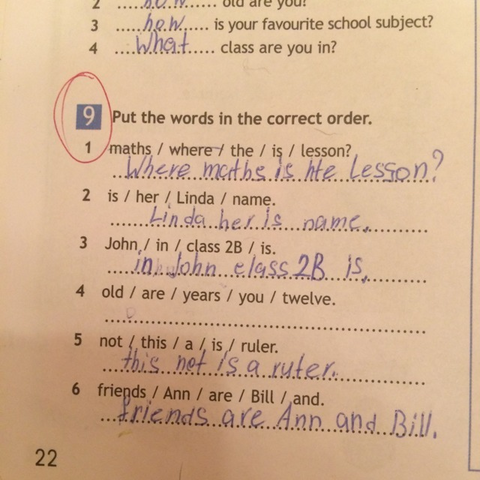 2 ......how...... old are you?
3 ......how...... is your favourite school subject?
4 .....What..... class are you in?
9 Put the words in the correct order.
1 maths / where / the / is / lesson?
Where maths is hte Lesson?
2 is / her / Linda / name.
Linda her is name.
3 John / in / class 2B / is.
in John class 2B is.
4 old / are / years / you / twelve.
5 not / this / a / is / ruler.
this not is a ruter.
6 friends / Ann / are / Bill / and.
friends are Ann and Bill.
22